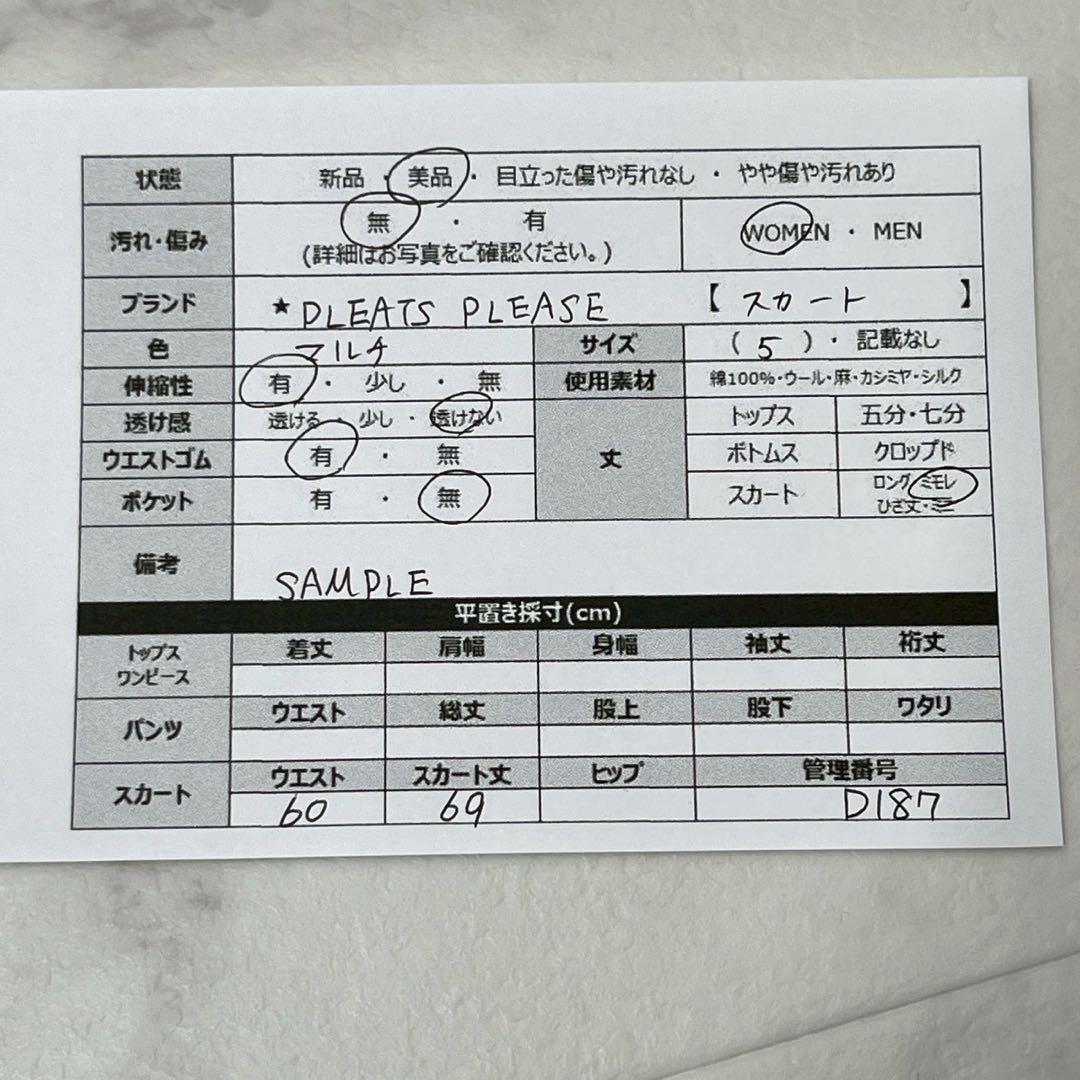 状態 新品 ・ 美品 ・ 目立った傷や汚れなし ・ やや傷や汚れあり
汚れ・傷み 無 ・ 有 WOMEN ・ MEN
(詳細はお写真をご確認ください。)
ブランド ★PLEATS PLEASE 【 スカート 】
色 マルチ サイズ ( 5 )・ 記載なし
伸縮性 有 ・ 少し ・ 無 使用素材 綿100%・ウール・麻・カシミヤ・シルク
透け感 透ける ・ 少し ・ 透けない 丈 トップス 五分・七分
ウエストゴム 有 ・ 無 ボトムス クロップド
ポケット 有 ・ 無 スカート ロング・ミモレ
ひざ丈・ミニ
備考 SAMPLE
平置き採寸(cm)
トップス
ワンピース 着丈 肩幅 身幅 袖丈 裄丈
パンツ ウエスト 総丈 股上 股下 ワタリ
スカート ウエスト スカート丈 ヒップ 管理番号
60 69 D187